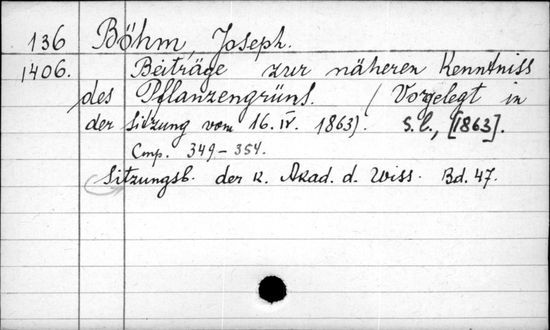 136 Böhm, Joseph.
1406. Beiträge zur näheren Kenntniss
des Pflanzengrüns. (Vorgelegt in
der Sitzung vom 16. IV. 1863). S. l., [1863].
Стр. 349-354.
Sitzungsb. der K. Akad. d. Wiss. Bd. 47.